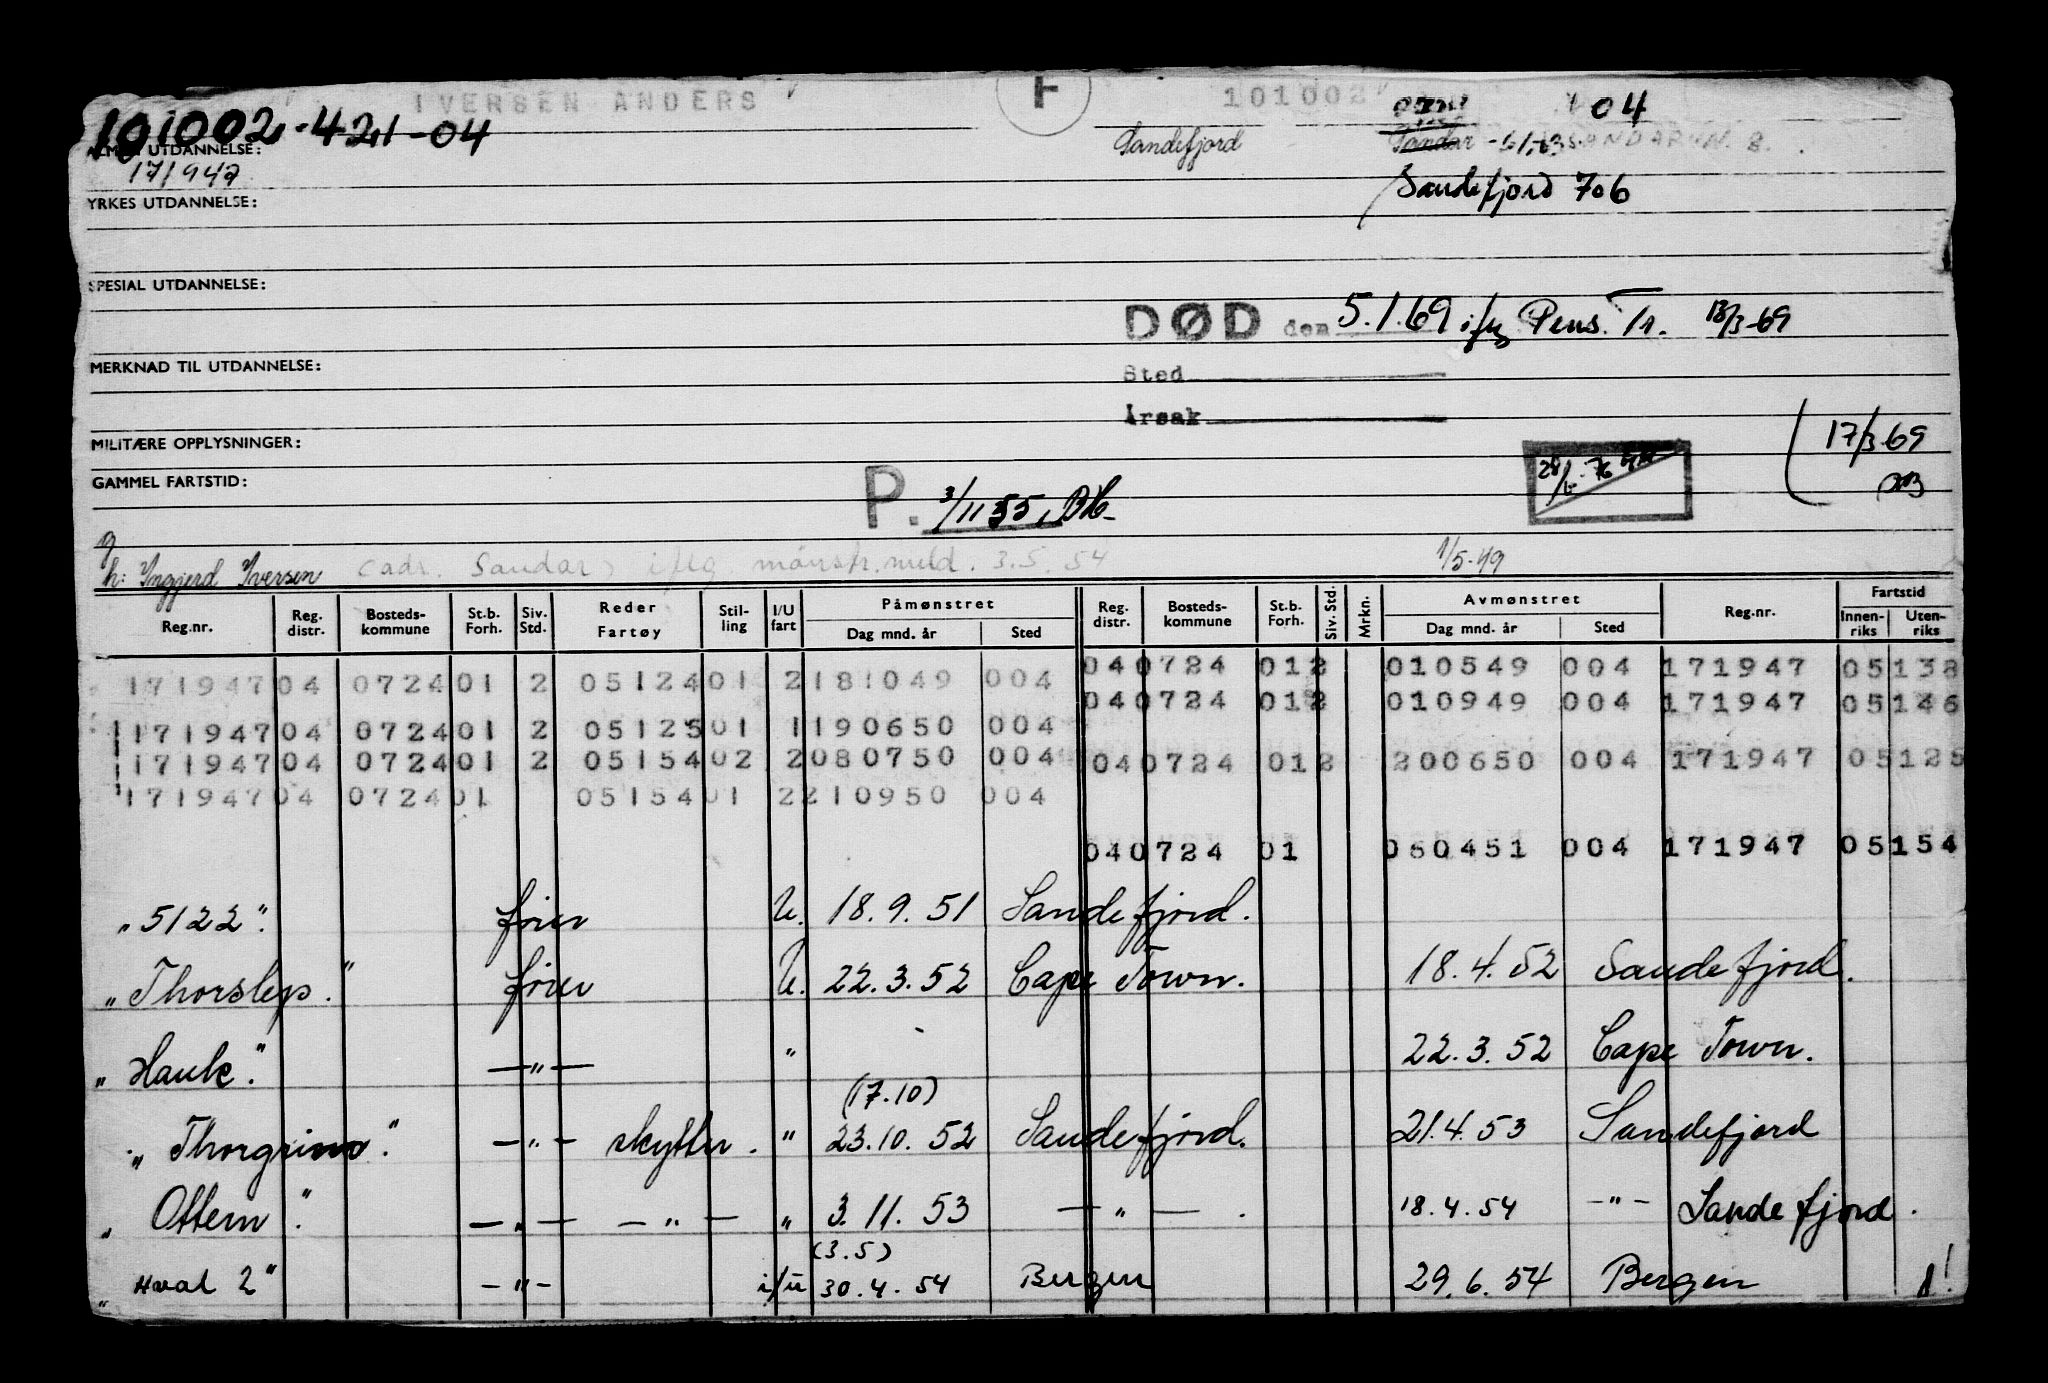 IVERSEN ANDERS F 101002 04
101002-421-04 Sandefjord Sandar -6/ SANDAR VN. 8.
ALM. UTDANNELSE:
171947 Sandefjord 706
YRKES UTDANNELSE:
SPESIAL UTDANNELSE:
DØD den 5.1.69 ifg Pens. Tr. 18/3-69
MERKNAD TIL UTDANNELSE:
Sted
Årsak
MILITÆRE OPPLYSNINGER: 17/3.69
GAMMEL FARTSTID:
P. 3/11 55, BH-
g
h: Yngjerd Yversen (adr. Sandar, iflg. mönstr.meld. 3.5.54 1/5-49
Reg.nr. Reg. distr. Bosteds-kommune St.b. Forh. Siv. Std. Reder Fartøy Stil-ling I/U fart Påmønstret Dag mnd. år Sted Reg. distr. Bosteds-kommune St.b. Forh. Siv. Std. Mrkn. Avmønstret Dag mnd. år Sted Reg.nr. Fartstid Innen-riks Uten-riks
040724 012 010549 004 171947 05138
171947 04 0724 01 2 05124 01 2 181049 004
040724 012 010949 004 171947 05146
171947 04 0724 01 2 05125 01 1 190650 004
171947 04 0724 01 2 05154 02 2 080750 004 040724 012 200650 004 171947 05125
171947 04 0724 01 05154 01 2 210950 004
040724 01 060451 004 171947 05154
"5122". frier U. 18.9.51 Sandefjord.
"Thorslep." frier U. 22.3.52 Cape Town. 18.4.52 Sandefjord.
"Hauk". —"— " 22.3.52 Cape Town.
(17.10)
"Thorgrim". —"— skytter. " 23.10.52 Sandefjord. 21.4.53 Sandefjord
"Ottern". —"— —"— " 3.11.53 —"—. 18.4.54 —"— Sandefjord.
(3.5)
"Hval 2" —"— i/u 30.4.54 Bergen 29.6.54 Bergen